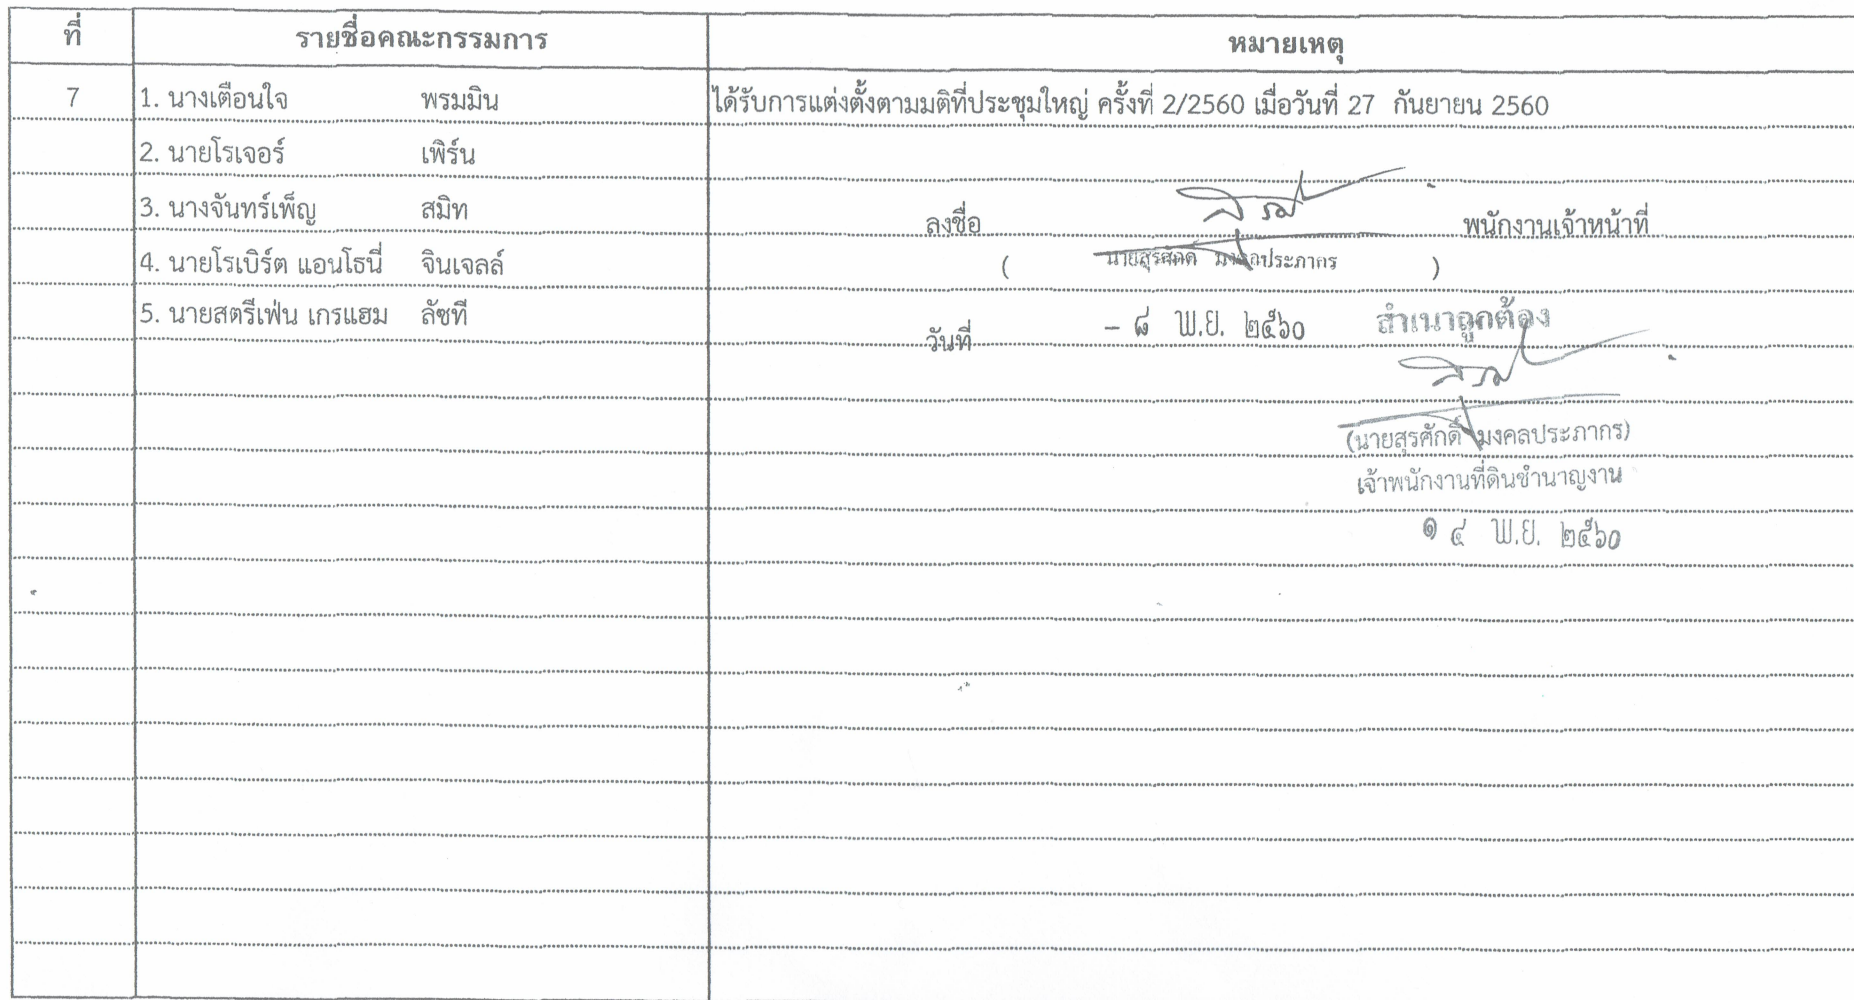 ที่ รายชื่อคณะกรรมการ หมายเหตุ
7 1. นางเตือนใจ พรมมิน ได้รับการแต่งตั้งตามมติที่ประชุมใหญ่ ครั้งที่ 2/2560 เมื่อวันที่ 27 กันยายน 2560
2. นายโรเจอร์ เพิร์น
3. นางจันทร์เพ็ญ สมิท ลงชื่อ พนักงานเจ้าหน้าที่
4. นายโรเบิร์ต แอนโธนี่ จินเจลล์ ( นายสุรศักดิ์ มงคลประภากร )
5. นายสตรีเฟ่น เกรแฮม ลัชที
วันที่ - ๘ พ.ย. ๒๕๖๐ สำเนาถูกต้อง
(นายสุรศักดิ์ มงคลประภากร)
เจ้าพนักงานที่ดินชำนาญงาน
๑ ๔ พ.ย. ๒๕๖๐